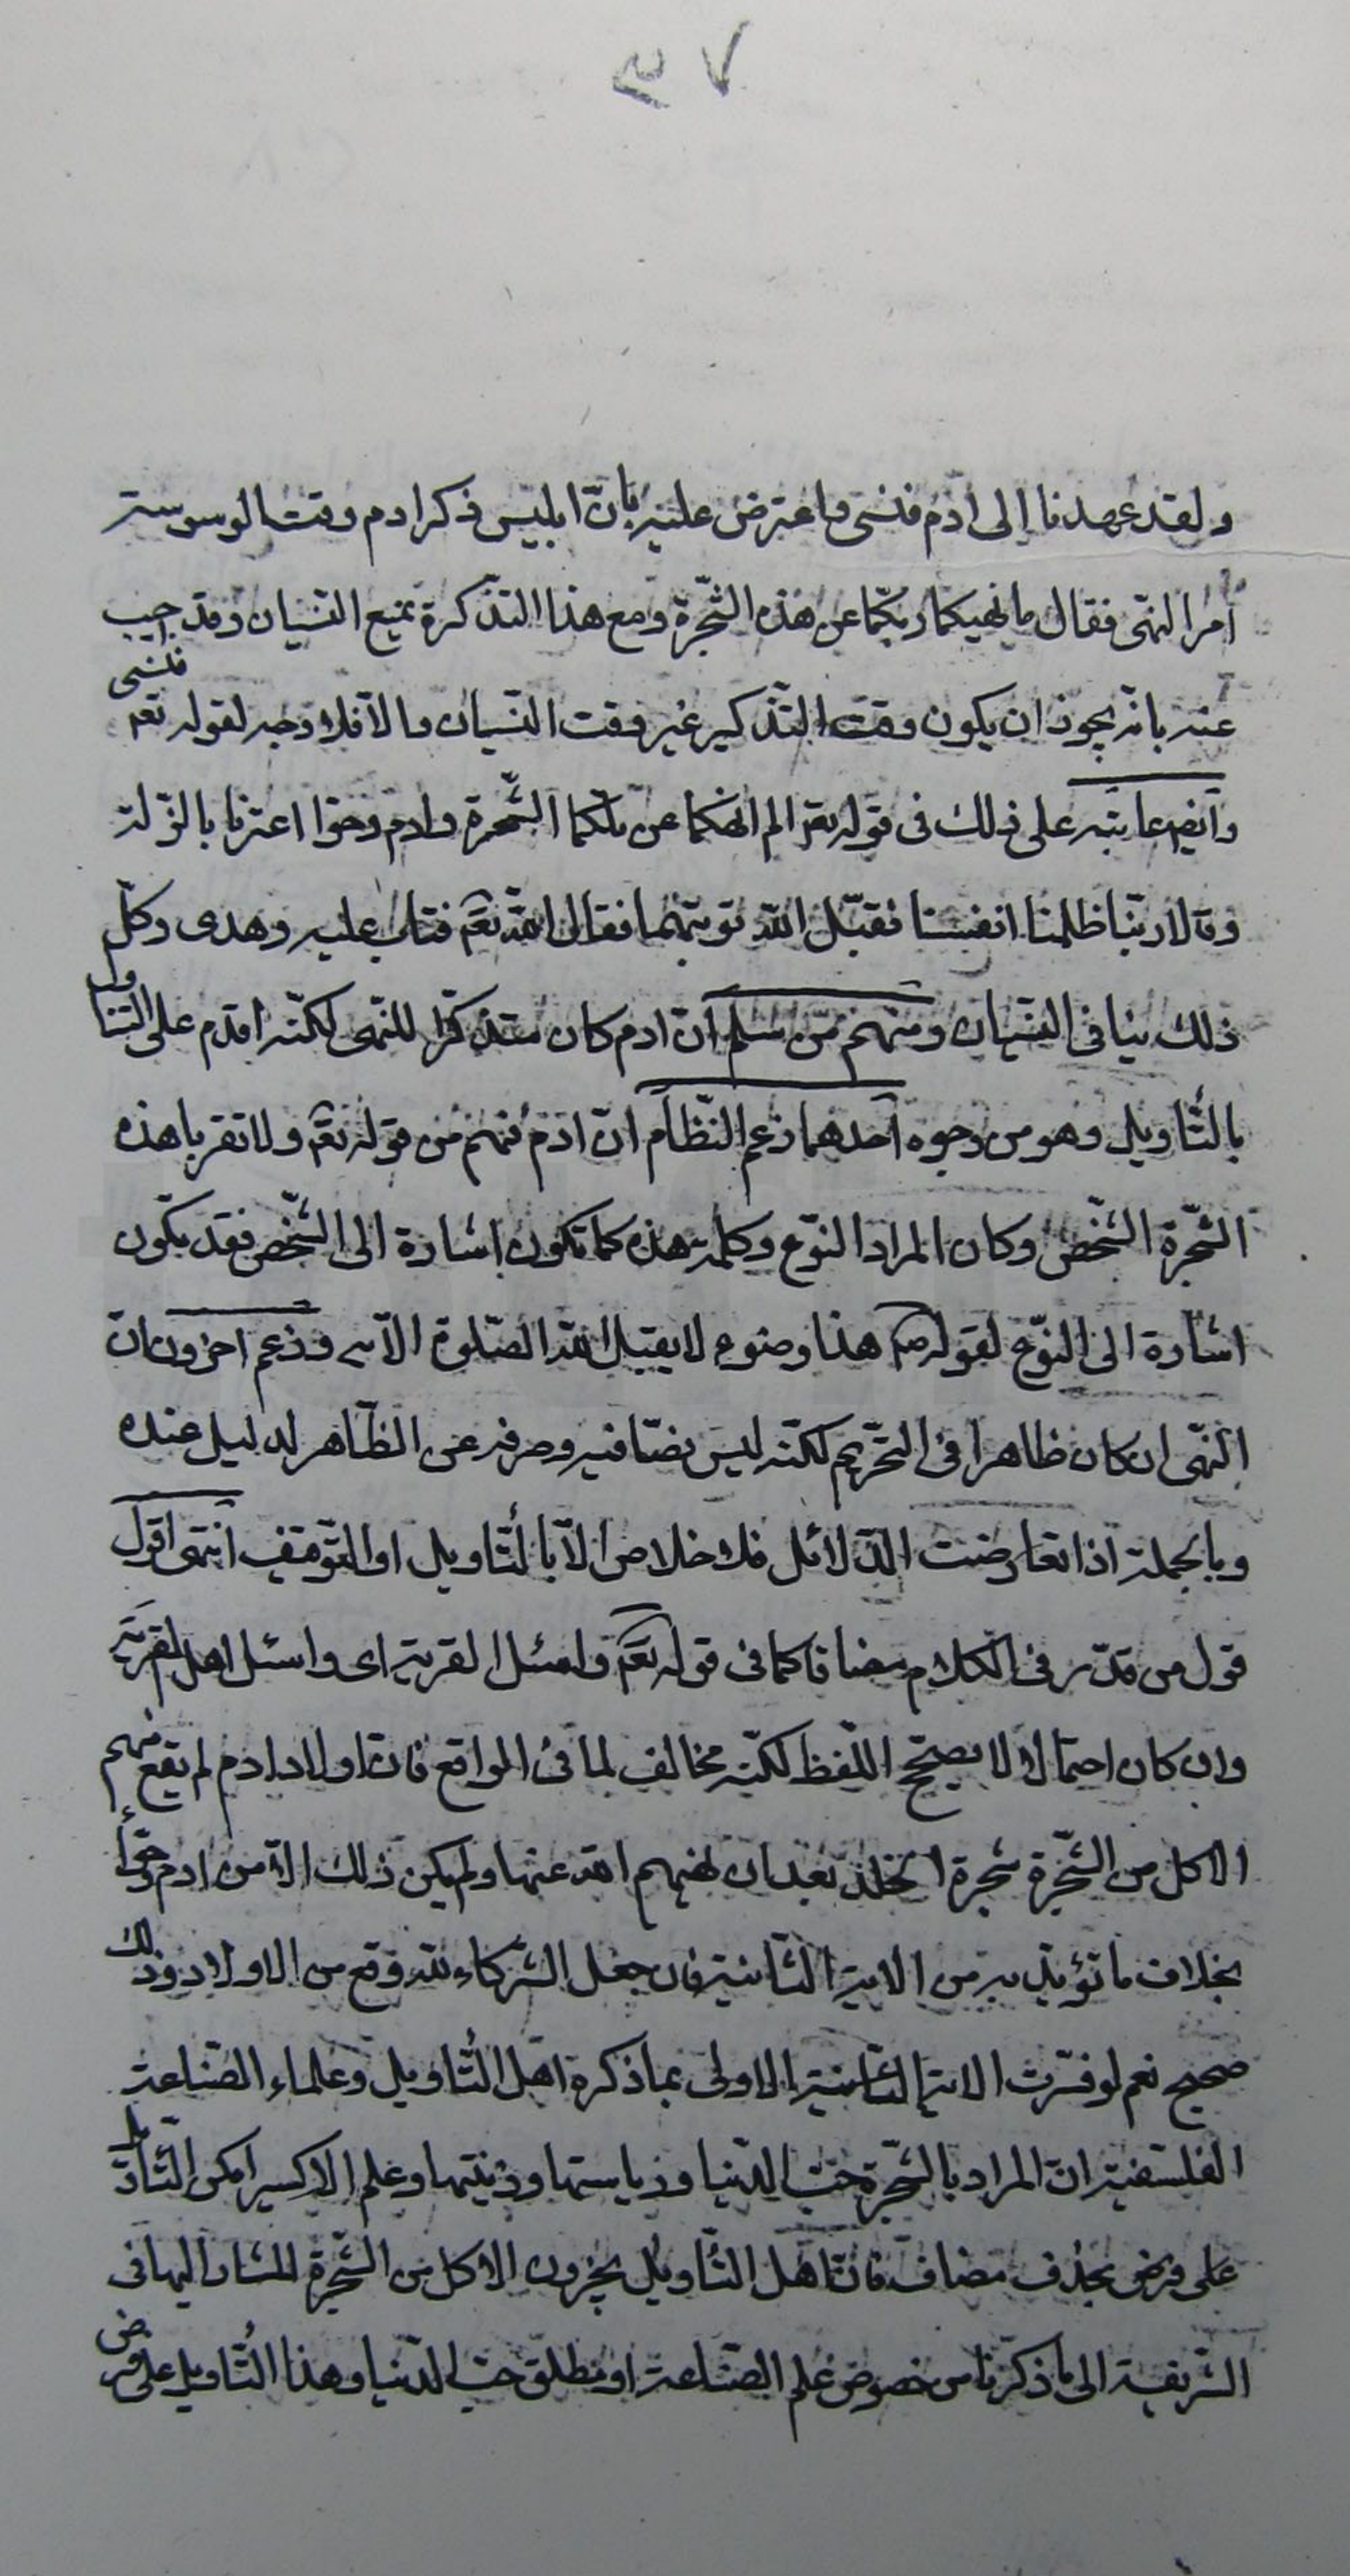 ٣٧
ولقد عهدنا إلى ادم فنسى واعترض عليه بانّ ابليس ذكر ادم وقت الوسوسة
امر النهى فقال ما نهيكما ربكما عن هذه الشّجرة ومع هذا التذكرة يمتنع النسيان وقد اجيب
عنه بانه يجوز ان يكون وقت التّذكير غير وقت النسيان والا فلا وجه لقوله تعم فنسى
وايضا عاتبه على ذلك فى قوله تعم الم انهكما عن تلكما الشّجرة وادم وحوّا اعترفا بالزّلة
وقالا ربّنا ظلمنا انفسنا فقبل الله توبتهما فقال الله تعم فتاب عليه وهدى وكلّ
ذلك ينافى النسيان ومنهم من سلم انّ ادم كان متذكّرا للنّهى لكنّه اقدم على التناول
بالتّأويل وهو من وجوه احدهما زعم النّظام انّ ادم فهم من قوله تعم ولا تقربا هذه
الشّجرة الشّخص وكان المراد النّوع وكلمة هذه كما تكون اشارة الى الشّخص فقد يكون
اشارة الى النّوع لقوله صم هذا وضوء لا يقبل الله الصّلوة الا به وزعم اخرون انّ
النّهى ان كان ظاهرا فى التحّريم لكنّه ليس نصّا فيه وصرفه عن الظّاهر لدليل عنده
وبالجملة اذا تعارضت الدّلائل فلا خلاص الّا بالتّأويل او التّوقيف انتهى اقول
قول من قدّر فى الكلام مضافا كما فى قوله تعم واسئل القرية اى واسئل اهل القرية
وان كان احتمالا لا يصحّح اللّفظ لكنّه مخالف لما فى المواقع فانّ اولاد ادم لم يقع منهم
الاكل من الشّجرة شجرة الخلد بعد ان نهيهم الله عنها ولم يكن ذلك الا من ادم وحوّاء
بخلاف ما تؤيد به من الاية الثّانية فان جعل الشّركاء لله وقع من الاولاد وذلك
صحيح نعم لو فسّرت الاية الثّانية الاولى بما ذكره اهل التّأويل وعلماء الصّناعة
الفلسفية انّ المراد بالشّجرة حبّ الدّنيا ورياستها وزينتها وعلم الاكسير امكن التّأويل
على فرض بحذف مضاف فانّ اهل التّأويل يخبرون الاكل من الشّجرة المشار اليها فى
الشريفة الى ما ذكرنا من خصوص علم الصّناعة او مطلق حبّ الدّنيا وهذا التّأويل على فرض